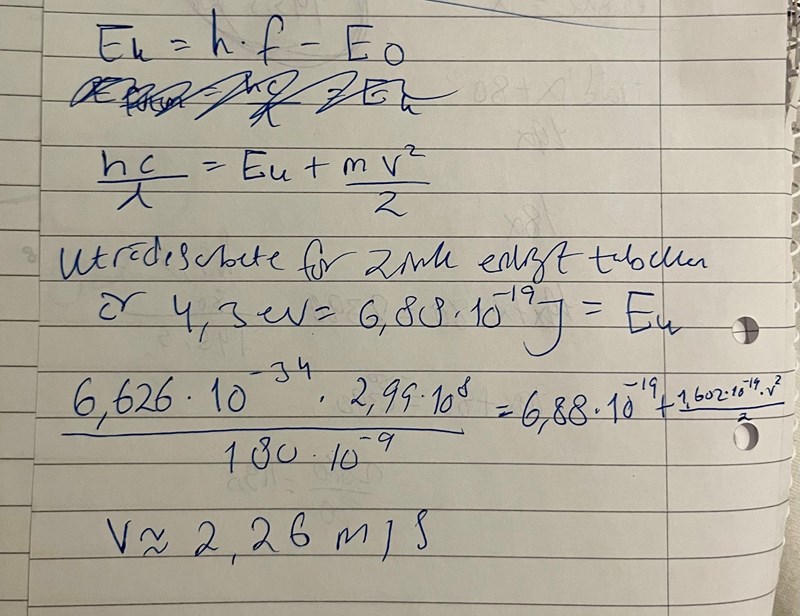 Ek = h·f − E0
hc/λ = Eu + mv²/2
Uträdesarbete för zink enligt tabellen
är 4,3 eV = 6,88·10⁻¹⁹ J = Eu
6,626·10⁻³⁴ · 2,99·10⁸ / 180·10⁻⁹ = 6,88·10⁻¹⁹ + 1,602·10⁻¹⁹·v²/2
V ≈ 2,26 m/s